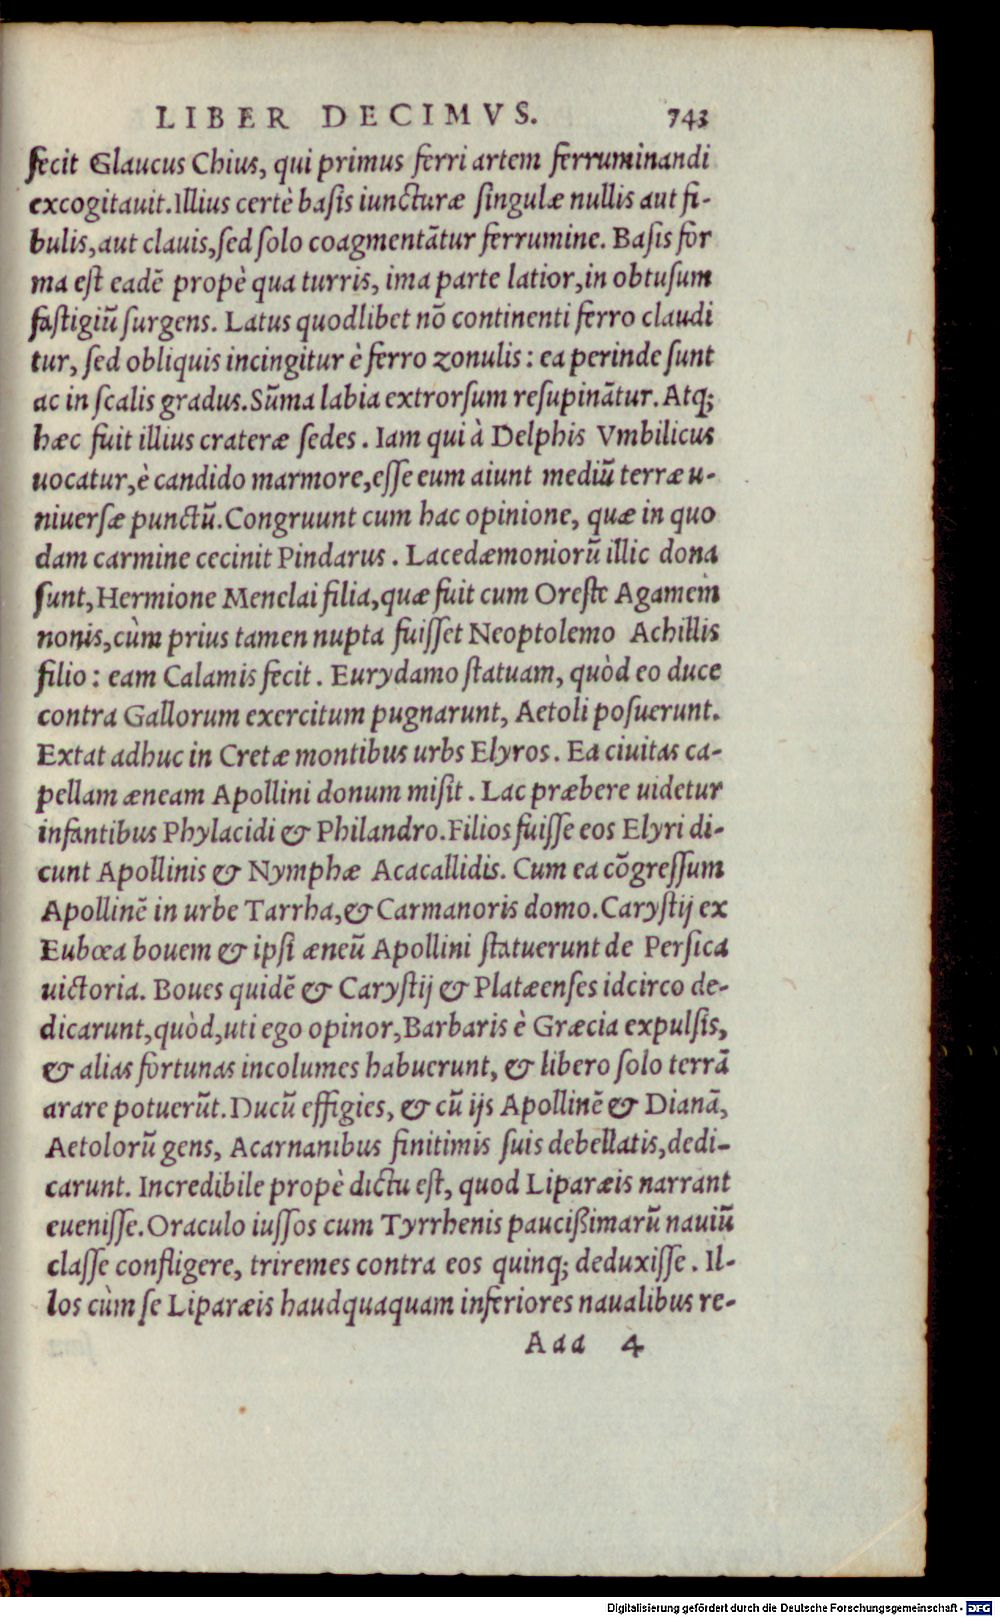 LIBER DECIMVS. 743
fecit Glaucus Chius, qui primus ferri artem ferruminandi
excogitauit. Illius certè basis iuncturæ singulæ nullis aut fi-
bulis, aut clauis, sed solo coagmentãtur ferrumine. Basis for
ma est eadẽ propè qua turris, ima parte latior, in obtusum
fastigiũ surgens. Latus quodlibet nõ continenti ferro claudi
tur, sed obliquis incingitur è ferro zonulis: ea perinde sunt
ac in scalis gradus. Sũma labia extrorsum resupinãtur. Atq;
hæc fuit illius crateræ sedes. Iam qui à Delphis Vmbilicus
uocatur, è candido marmore, esse eum aiunt mediũ terræ u-
niuersæ punctũ. Congruunt cum hac opinione, quæ in quo
dam carmine cecinit Pindarus. Lacedæmoniorũ illic dona
sunt, Hermione Menelai filia, quæ fuit cum Oreste Agamem
nonis, cùm prius tamen nupta fuisset Neoptolemo Achillis
filio: eam Calamis fecit. Eurydamo statuam, quòd eo duce
contra Gallorum exercitum pugnarunt, Aetoli posuerunt.
Extat adhuc in Cretæ montibus urbs Elyros. Ea ciuitas ca-
pellam æneam Apollini donum misit. Lac præbere uidetur
infantibus Phylacidi & Philandro. Filios fuisse eos Elyri di-
cunt Apollinis & Nymphæ Acacallidis. Cum ea cõgressum
Apollinẽ in urbe Tarrha, & Carmanoris domo. Carystij ex
Eubœa bouem & ipsi æneũ Apollini statuerunt de Persica
uictoria. Boues quidẽ & Carystij & Platæenses idcirco de-
dicarunt, quòd, uti ego opinor, Barbaris è Græcia expulsis,
& alias fortunas incolumes habuerunt, & libero solo terrã
arare potuerũt. Ducũ effigies, & cũ ijs Apollinẽ & Dianã,
Aetolorũ gens, Acarnanibus finitimis suis debellatis, dedi-
carunt. Incredibile propè dictu est, quod Liparæis narrant
euenisse. Oraculo iussos cum Tyrrhenis paucißimarũ nauiũ
classe confligere, triremes contra eos quinq; deduxisse. Il-
los cùm se Liparæis haudquaquam inferiores naualibus re-
Aaa 4
Digitalisierung gefördert durch die Deutsche Forschungsgemeinschaft - DFG